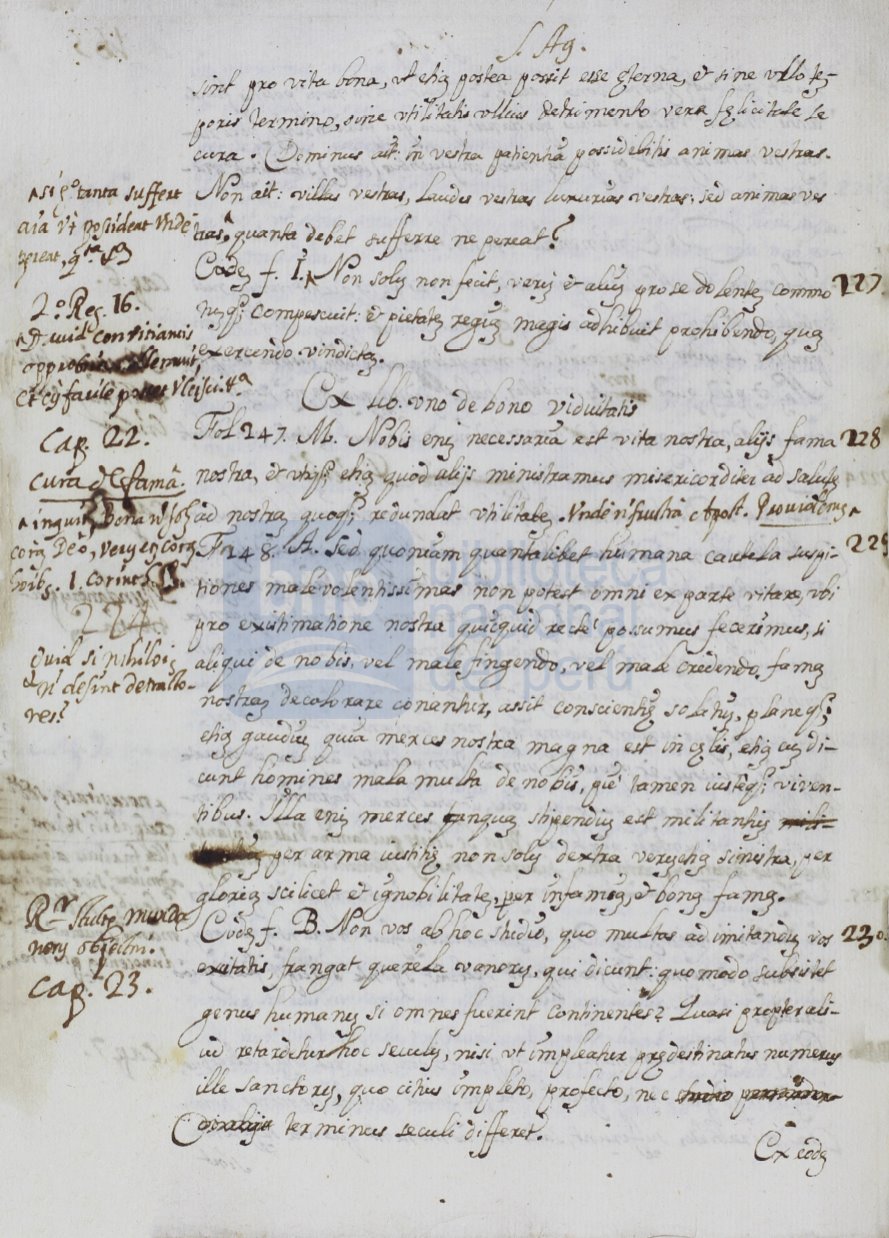 S. Ag.
sint pro vita bona, vt etiã postea possit esse ęterna, et sine vllo tẽ-
poris termino, sine vtilitatis vllius detrimento vera fęlicitate se
cura. Dominus ait: in vestra patientia possidebitis animas vestras.
Non ait: villas vestras, laudes vestras luxurias vestras: sed animas ves
tras. quanta debet sufferre ne pereat?
^ si g.º tanta suffert
aĩa vt posideat vnde
pereat,
Eodẽ f. I. ^ Non solũ non fecit, verũ et aliũ pro se dolentẽ commo 227
tũq; compescuit: et pietatẽ regiã magis adhibuit prohibendo, quã
exercendo vindictã.
2.º Reg. 16.
^ Dauid convitiantis
opprobria
et cũ facile posset vlcisci. &ª
Ex lib. vno de bono viduitatis
Cap. 22.
cura de fama.
Fol 247. M. Nobis enĩ necessaria est vita nostra, alijs fama 228
nostra, et vtiq; etiã quod alijs ministramus misericorditer ad salutẽ
ad nostrã quoq; redundat vtilitatẽ. Vnde ñ frustra Apost. Prouidẽmus ^
^ inquit, bona ñ solũ
corã Deo, verũ et corã
hoĩbs. 1. Corint.
F 248. A. Sed quoniam quantalibet humana cautela suspi- 229
tiones malevolentissimas non potest omni ex parte vitare, vbi
pro existimatione nostra quicquid recte possumus fecerimus, si
aliqui de nobis, vel male fingendo, vel male credendo, famã
nostrã decolorare conantur, assit conscientię solatiũ, planeq;
etiã gaudiũ quia merces nostra magna est in cęlis, etiã cũ di-
cunt homines mala multa de nobis, piè tamen iustèq; viven-
tibus. Illa enĩ merces tanquã stipendiũ est militantiũ
per arma iustitię non solũ dextra verũ etiã sinistra, per
gloriã scilicet et ignobilitatẽ, per infamiã, et bonã famã.
274.
Quid si nihilomi
ñ desint detracto-
res?
Eodẽ f. B. Non vos ab hoc studio, quo multas ad imitandũ vos 230.
exitatis, frangat querela vanorũ, qui dicunt: quomodo subsistet
genus humanũ si omnes fuerint continentes? Quasi propter ali-
ud retardetur hoc seculũ, nisi vt impleatur prędestinatus numerus
ille sanctorũ, quo citius impleto, profecto, nec
terminus seculi differet.
Rr stultę munda
norũ obiectioni.
Cap. 23.
Ex eodẽ
biblioteca
nacional
del perú